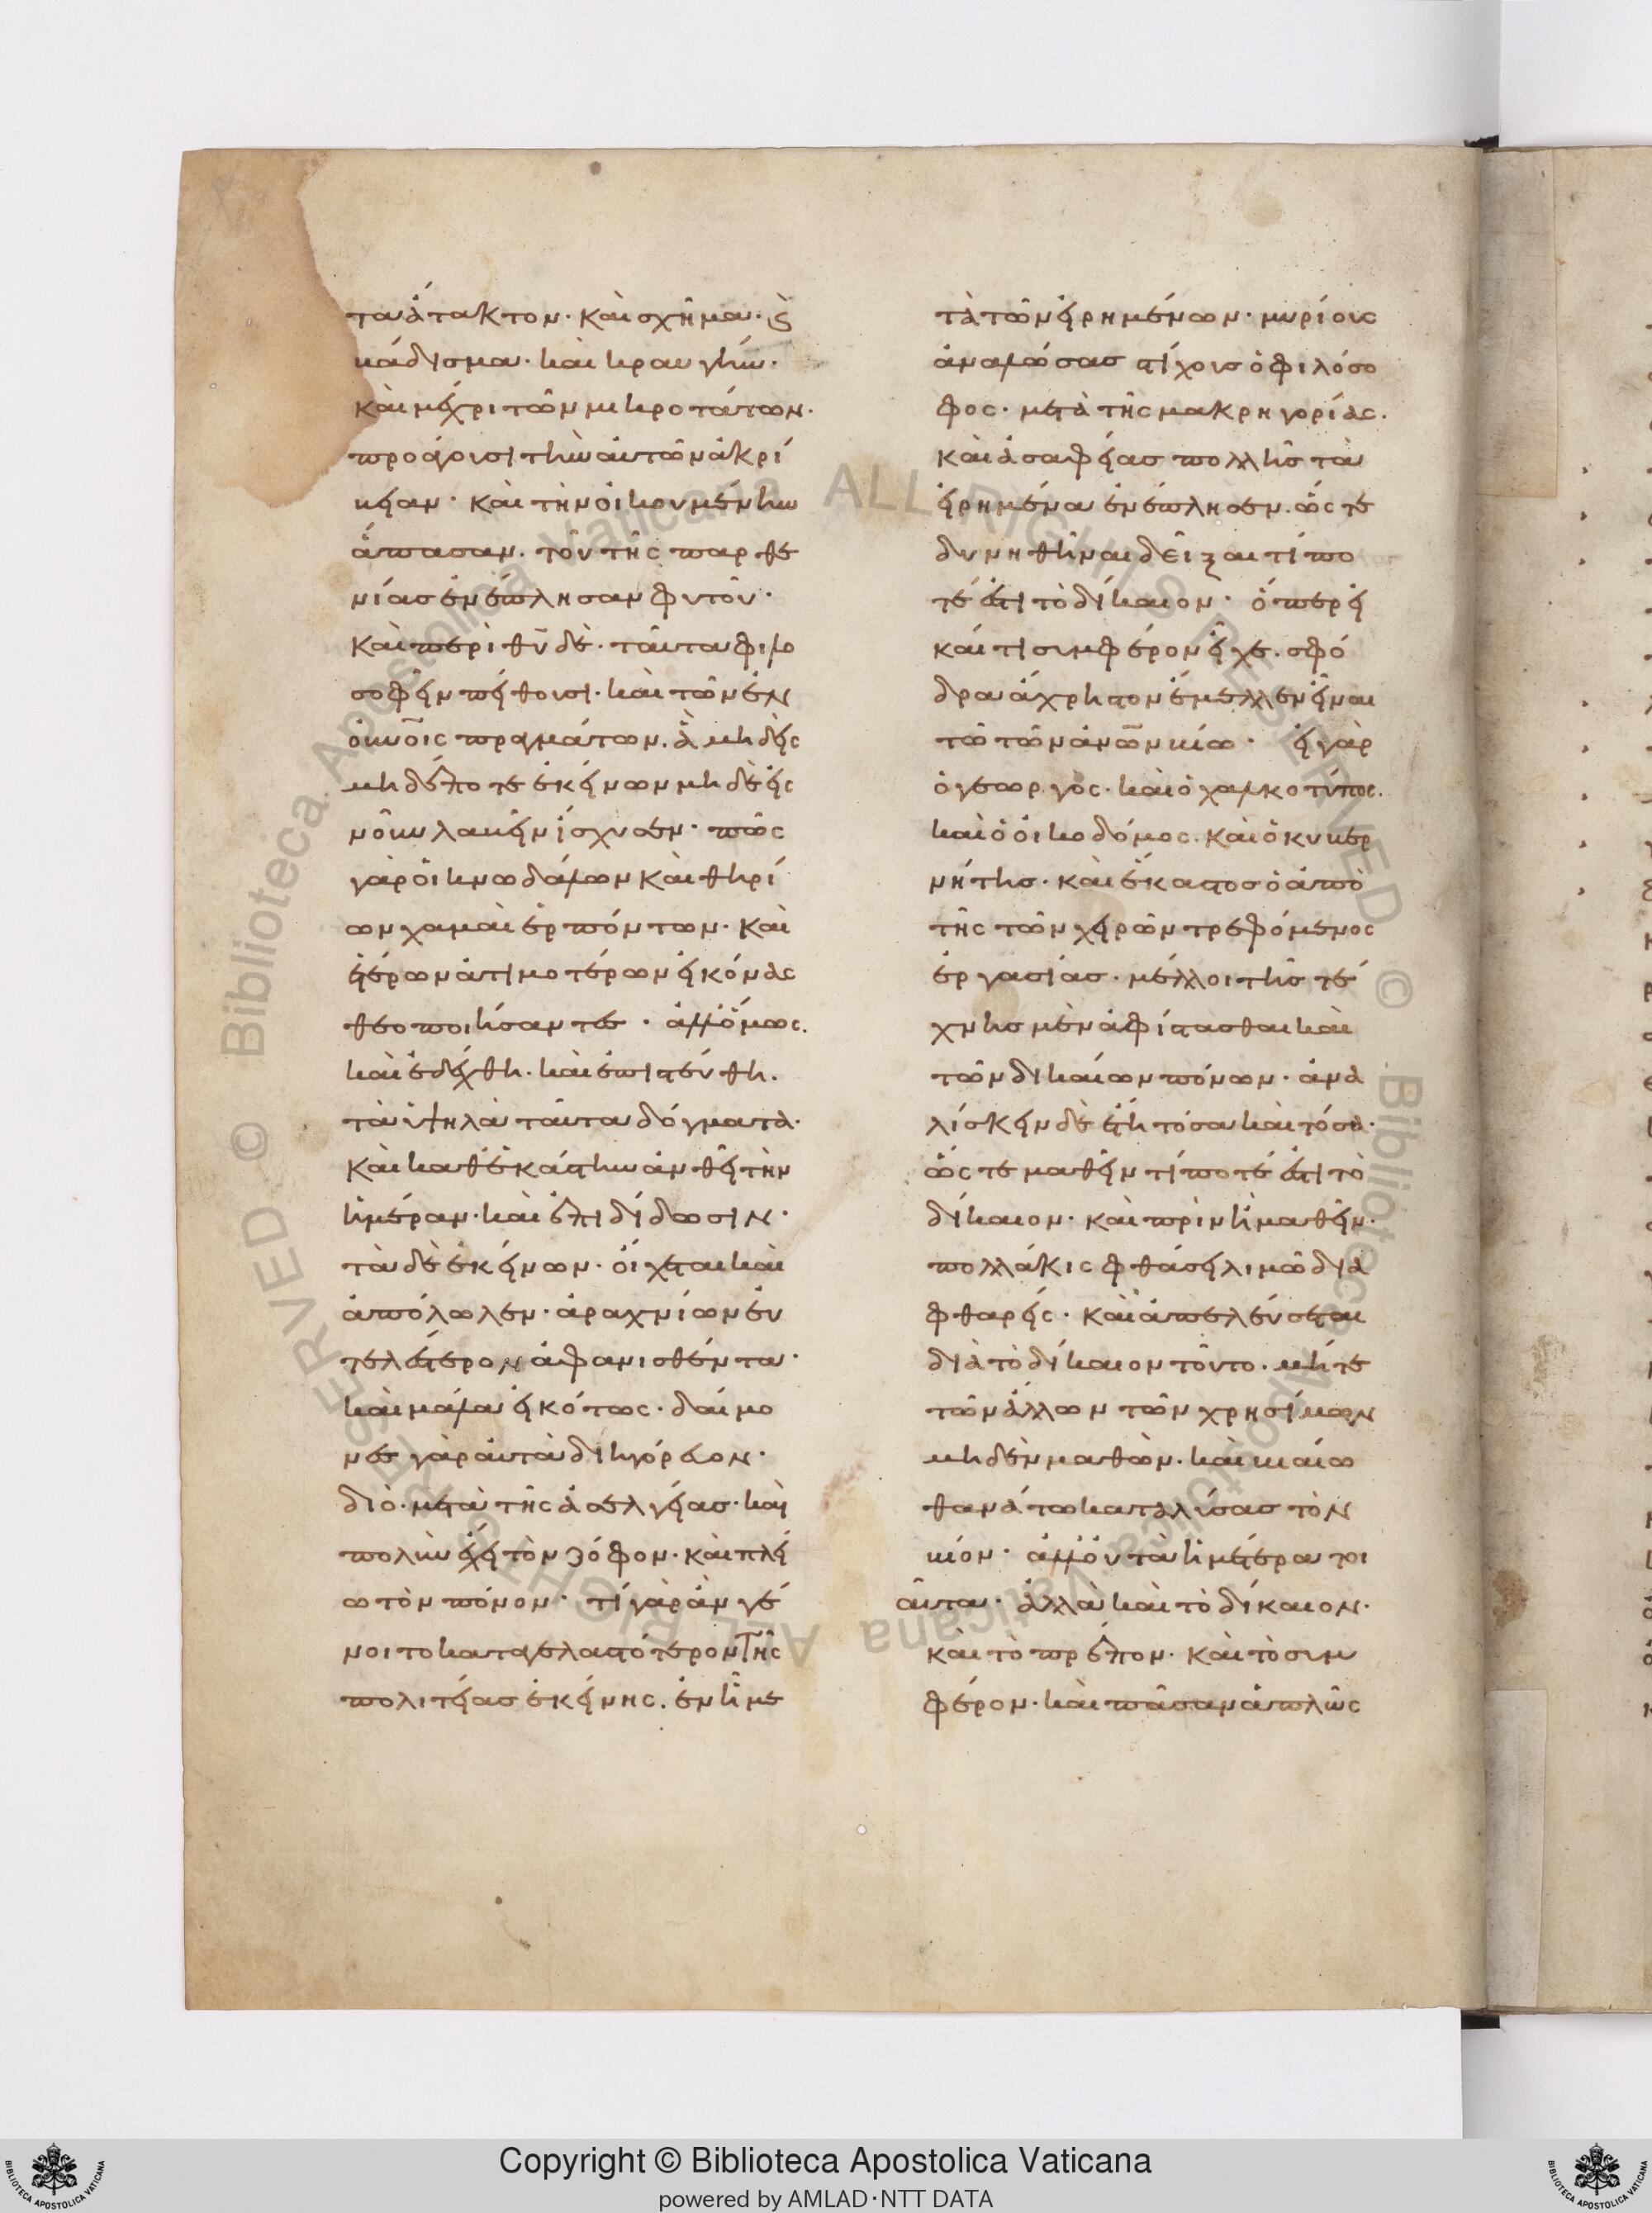 τα ἄτακτον· καὶ σχῆμα· καὶ
βάδισμα· καὶ κραυγήν·
καὶ μέχρι τῶν μικροτάτων·
προάγουσι τὴν αὐτῶν ἀκρί
βειαν· καὶ τὴν οἰκουμένην
ἅπασαν. τοῦ τῆς παρθε
νίας ἐνέπλησαν φυτοῦ·
καὶ περὶ θυ δὲ· ταῦτα φιλο
σοφεῖν πείθουσι· καὶ τῶν ἐν
οὐνοις πραγμάτων. ἃ μηδεὶς
μηδέποτε ἐκείνων μηδὲ εἰς
νοῦν λαβεῖν ἴσχυσεν· πῶς
γὰρ οἱ κνωδάλων καὶ θηρί
ων χαμαὶ ἑρπόντων· καὶ
ἑτέρων ἀτιμοτέρων εἰκόνας
θεοποιήσαντες· ἀλλ' ὅμως.
καὶ ἐδέχθη. καὶ ἐπιστεύθη.
τὰ ὑψηλὰ ταῦτα δόγματα·
καὶ καθ' ἑκάστην ἀνθεῖ τὴν
ἡμέραν· καὶ ἐπιδίδωσιν·
τὰ δὲ ἐκείνων· οἴχεται καὶ
ἀπόλωλεν· ἀραχνίων εὐ
τελέστερον ἀφανισθέντα·
καὶ μάλα εἰκότως· δαίμο
νες γὰρ αὐτὰ διηγόρευον·
διὸ· μετὰ τῆς ἀσελγείας· καὶ
πολὺν ἔχει τὸν ζόφον· καὶ πλεί
ω τὸν πόνον· τί γὰρ ἂν γέ
νοιτο καταγελαστότερον τῆς
πολιτείας ἐκείνης. ἐν ᾗ με
τὰ τῶν εἰρημένων· μυρίους
ἀναλώσας στίχους ὁ φιλόσο
φος· μετὰ τῆς μακρηγορίας·
καὶ ἀσαφείας πολλῆς τὰ
εἰρημένα ἐνέπλησεν. ὥστε
δυνηθῆναι δεῖξαι τί πο
τέ ἐστι τὸ δίκαιον· ὅπερ εἰ
καί τι συμφέρον εἶχε. σφό
δρα ἄχρηστον ἔμελλεν εἶναι
τῶ τῶν ἀνων βίω· εἰ γὰρ
ὁ γεωργὸς· καὶ ὁ χαλκοτύπος.
καὶ ὁ οἰκοδόμος. καὶ ὁ κυβερ
νήτης· καὶ ἕκαστος ὁ ἀπὸ
τῆς τῶν χειρῶν τρεφόμενος
ἐργασίας· μέλλοι τῆς τέ
χνης μὲν ἀφίστασθαι καὶ
τῶν δικαίων πόνων· ἀνα
λίσκειν δὲ ἔτη τόσα καὶ τόσα·
ὥστε μαθεῖν τί ποτέ ἐστι τὸ
δίκαιον· καὶ πρὶν ἢ μαθεῖν·
πολλάκις φθάσει λιμῶ δια
φθαρείς· καὶ ἀπελεύσεται
διὰ τὸ δίκαιον τοῦτο. μήτε
τῶν ἄλλων τῶν χρησίμων
μηδὲν μαθὼν. καὶ βιαίω
θανάτω καταλύσας τὸν
βίον· ἀλλ' οὐ τὰ ἡμέτερα τοι
αῦτα· ἀλλὰ καὶ τὸ δίκαιον·
καὶ τὸ πρέπον· καὶ τὸ συμ
φέρον· καὶ πᾶσαν ἁπλῶς
Copyright © Biblioteca Apostolica Vaticana
powered by AMLAD·NTT DATA